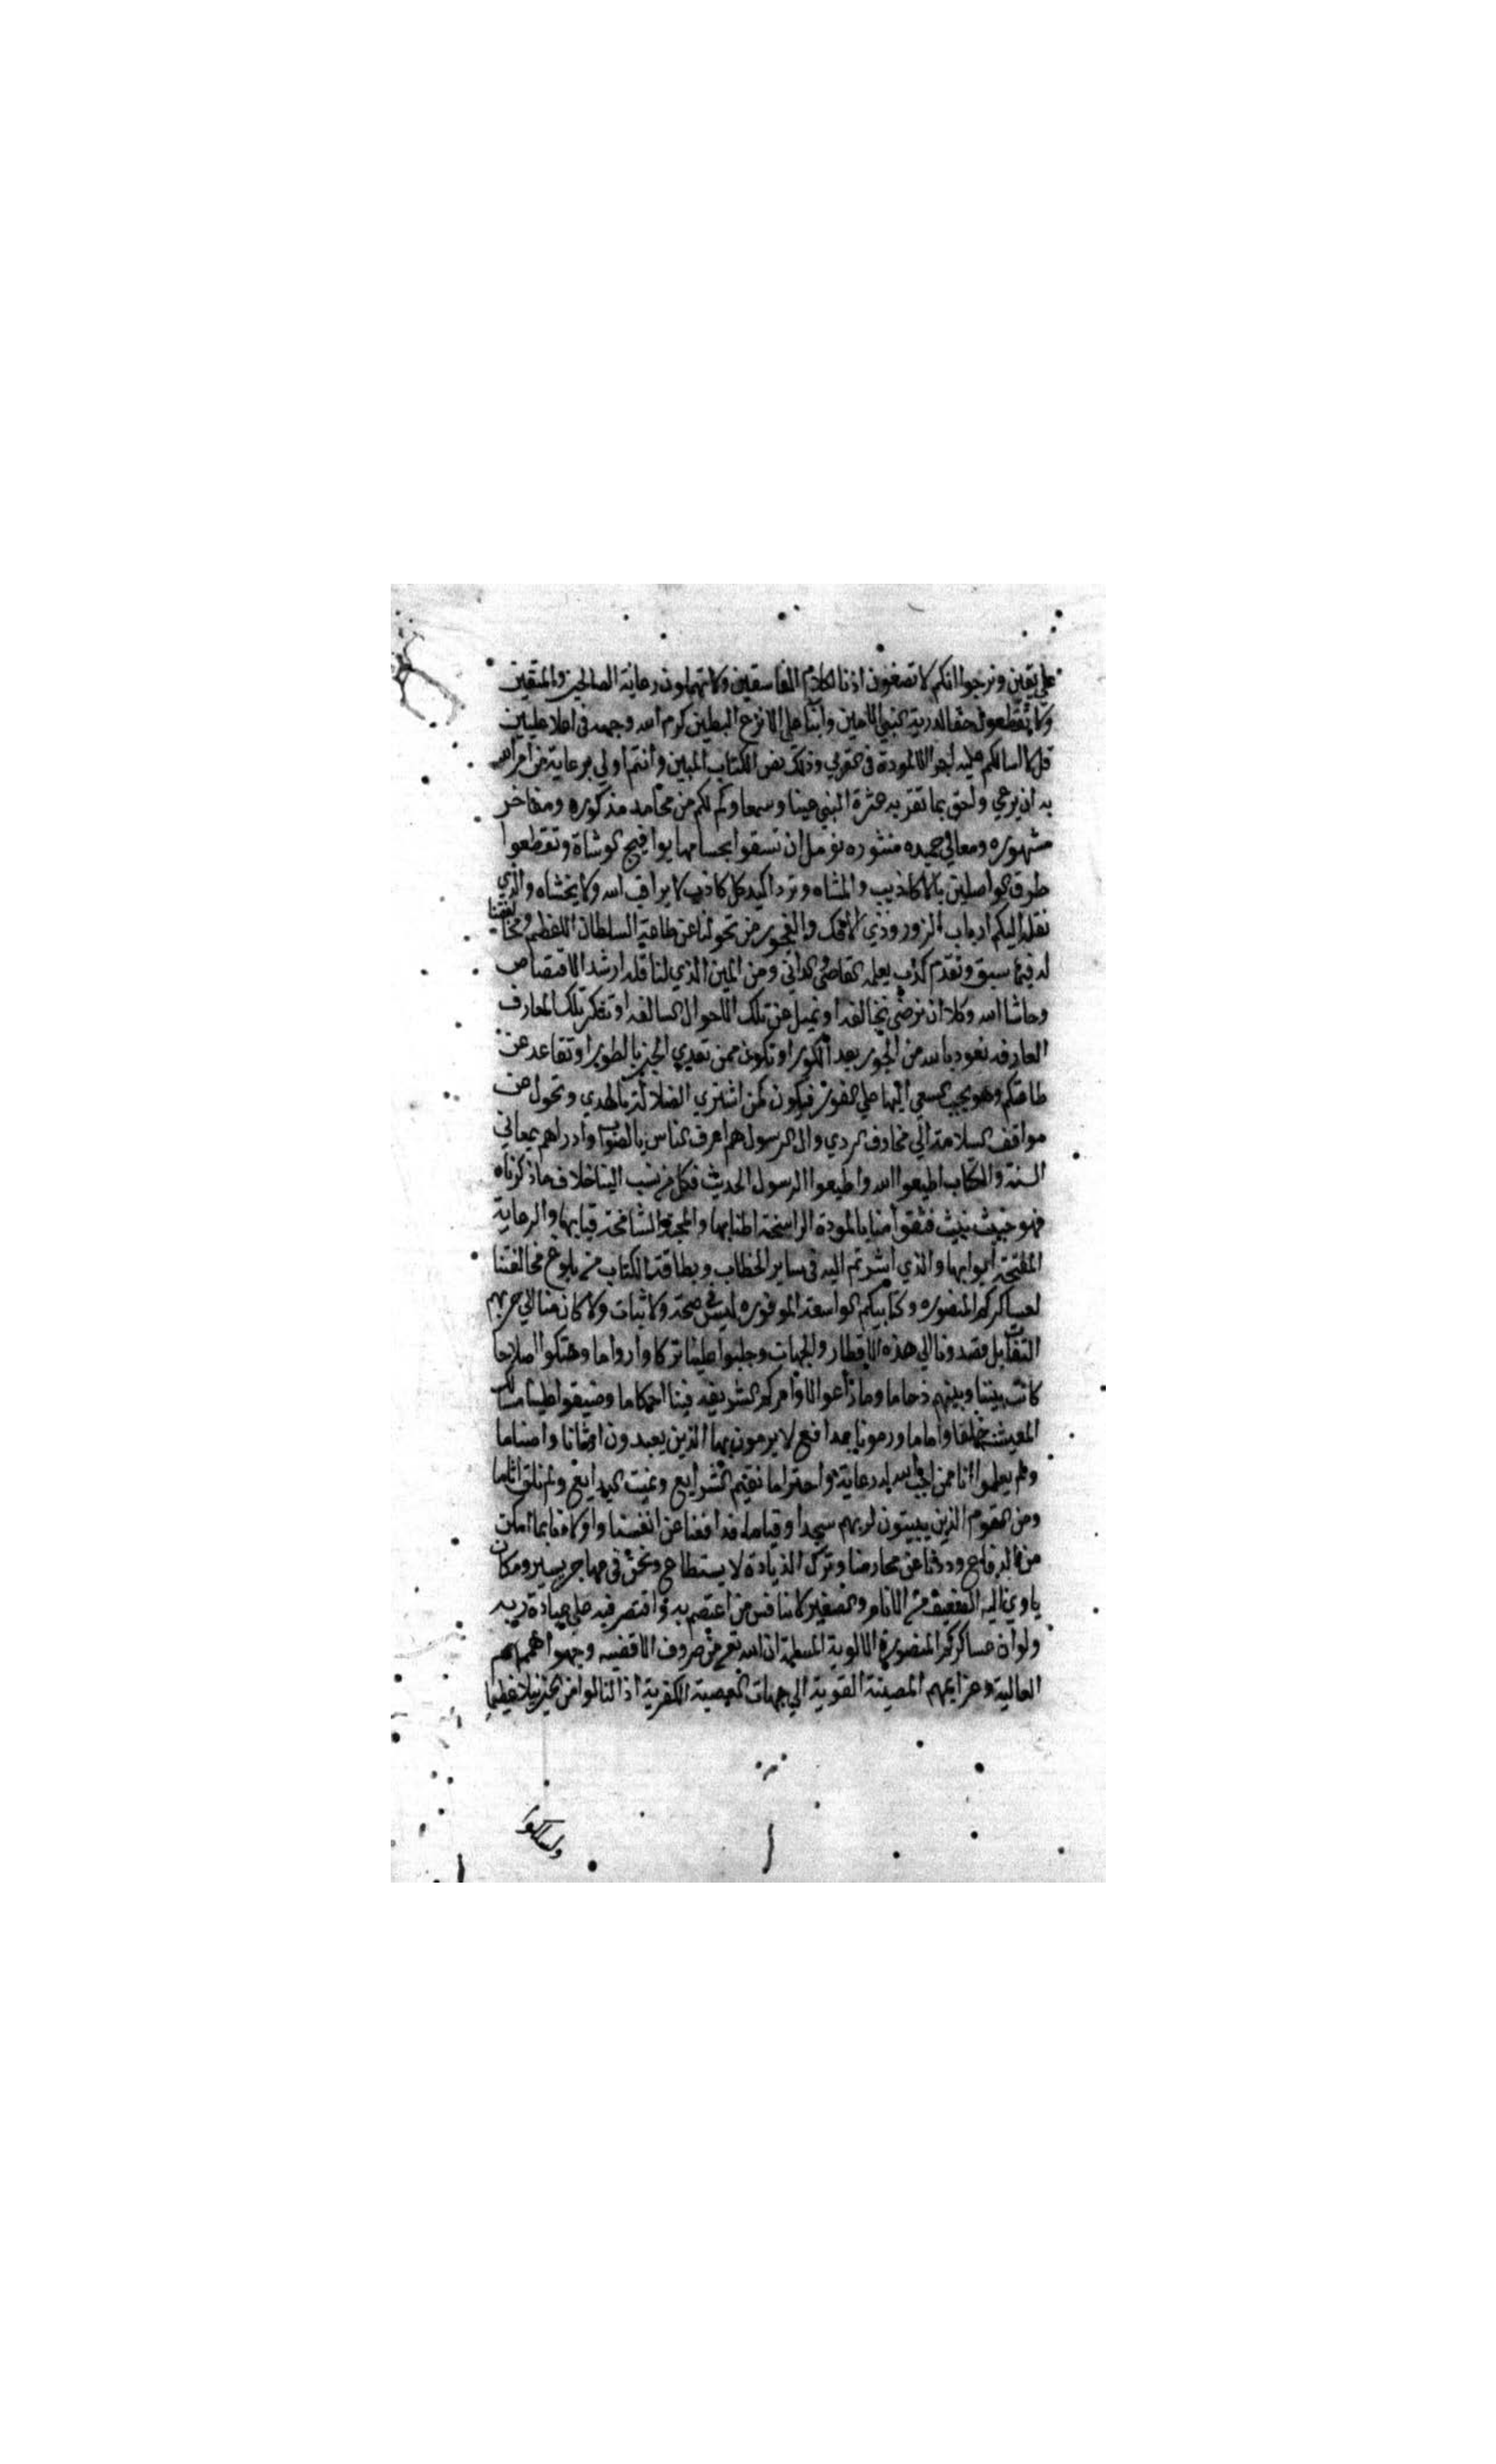 علي يقين ونرجوا انكم لا تصغون اذنا لكلام الفاسقين ولا تهملون رعاية الصالحين والمتقين
ولا تقطعون حقا لذرية النبي الامين وابنا علي الانزع البطين كرم الله وجهه في اعلا عليين
قل لا اسالكم عليه اجرا الا المودة في القربي وذلك نص الكتاب المبين وأنتم اولي برعاية من امر الله
به ان يرعي واحق بما تقر به عترة النبي عينا وسمعا وكم لكم من محامد مذكوره ومفاخر
مشهوره ومعالي حميده منشوره نومل ان تسقوا بحسامها يوافيخ الوشاة وتقطعوا
طرق الواصلين بالاكاذيب والمشاه وترد اكيد كل كاذب لا يراقب الله ولا يخشاه والذي
نقله اليكم ارباب الزور وذوي الافك والفجور من تحولنا عن طاعة السلطان الاعظم ومخالفتنا
له فيما سبق وتقدم كذب يعلمه القاصي والداني ومن المين الذي لنا قلد ارشد الاقتصاص
وحاشا الله وكلا ان نرضي بمخالفه او نميل عن تلك الاحوال السالفه او تنكر تلك المعارف
العارفه نعوذ بالله من الحور بعد الكور او نكون ممن تعدي الحد بالطور او تقاعد عن
طاعتكم وهو يجب السعي اليها علي الفور فيكون كمن اشتري الضلالة بالهدي وتحول عن
مواقف السلامة الي مخاوف الردي وال الرسول هم اعرف الناس بالصواب وادراهم بمعاني
السنة والكتاب اطيعوا الله واطيعوا الرسول الحديث فكل من نسب الينا خلاف ما ذكرناه
فهو خبيث نبيث فثقوا منا بالمودة الراسخة اطنابها والمحبة الشامخة قبابها والرعاية
المفتحة ابوابها والذي اشرتم اليه في ساير الخطاب وبطاقة الكتاب من بلوغ مخالفتنا
لعساكركم المنصوره وكتايبكم الواسعة الموفوره ليس في صحة ولا ثبات ولا كان منا الي حربهم
التفات بل قصدونا الي هذه الاقطار والجهات وجلبوا علينا تركا وأرواما وهتكوا اصلاحا
كانت بيننا وبينهم ذماما وما راعوا لاوامركم الشريفه فينا احكاما وضيقوا علينا مسالك
المعيشة خلفا واماما ورمونا بمدافع لا يرمون بها الذين يعبدون اوثانا واصناما
ولم يعلموا اننا ممن اوجب الله له رعاية واحتراما نقيم الشرايع ونميت البدايع ولم نلق اثاما
ومن القوم الذين يبيتون لربهم سجدا وقياما فدافعنا عن انفسنا واولادنا بما امكن
من الدفاع وذدنا عن محارمنا وترك الذيادة لا يستطاع ونحن في مهاجر يسير ومكان
ياوي اليه الضعيف من الانام والصغير لا ينافس من اعتصم به واقتصر فيه علي عبادة ربه
ولو ان عساكركم المنصورة الالوية المسلمة ان شا الله تعالي من صروف الاقضيه وجهوا هممهم
العالية وعزايمهم المصيبة القوية الي جهات العصبة الكفرية اذا لنالوا من الخير نيلا عظيما
ولسلكوا